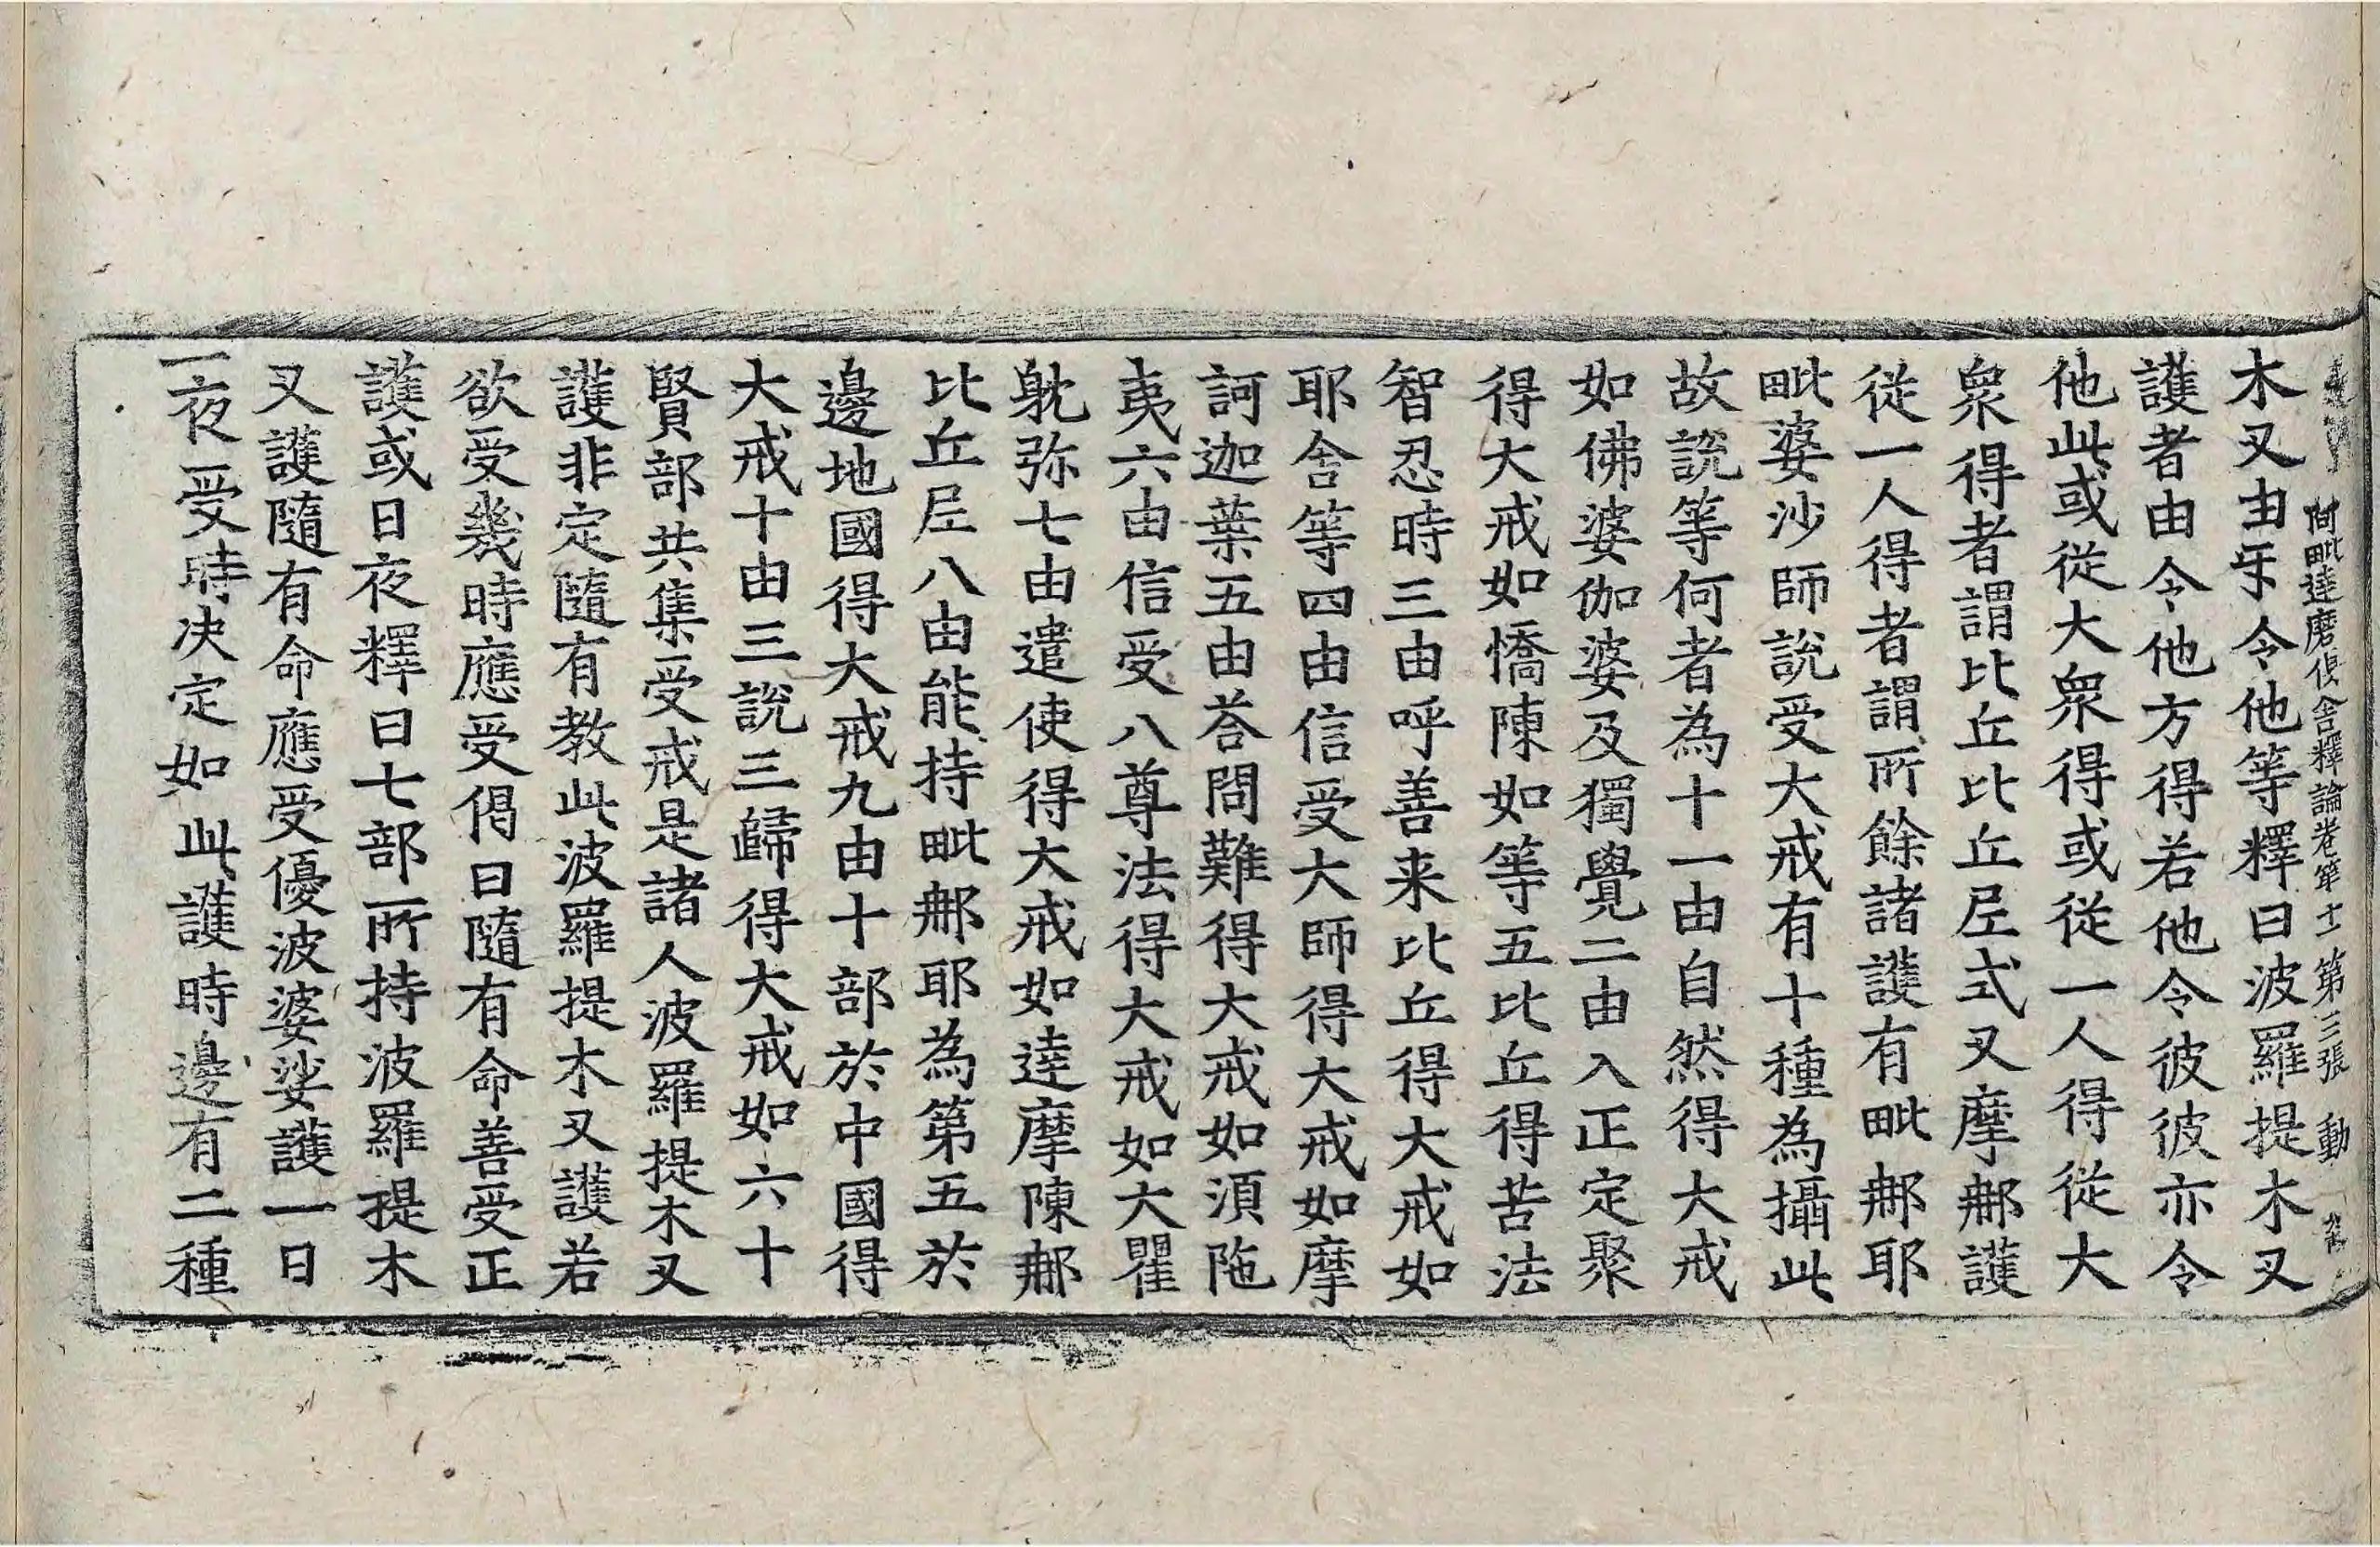 阿毗達磨俱舍釋論卷第十一 第三張 動
木叉由㸦令他等釋曰波羅提木叉
護者由令他方得若他令彼彼亦令
他此或從大衆得或從一人得從大
衆得者謂比丘比丘尼式叉摩那護
從一人得者謂所餘諸護有毗那耶
毗婆沙師說受大戒有十種為攝此
故說等何者為十一由自然得大戒
如佛婆伽婆及獨覺二由入正定聚
得大戒如憍陳如等五比丘得苦法
智忍時三由呼善来比丘得大戒如
耶舍等四由信受大師得大戒如摩
訶迦葉五由荅問難得大戒如湏陁
夷六由信受八尊法得大戒如大瞿
躭弥七由遣使得大戒如達摩陳那
比丘尼八由能持毗那耶為第五於
邊地國得大戒九由十部於中國得
大戒十由三說三歸得大戒如六十
賢部共集受戒是諸人波羅提木叉
護非定隨有教此波羅提木叉護若
欲受幾時應受偈曰隨有命善受正
護或日夜釋曰七部所持波羅提木
叉護隨有命應受優波婆娑護一日
一夜受時决定如此護時邊有二種